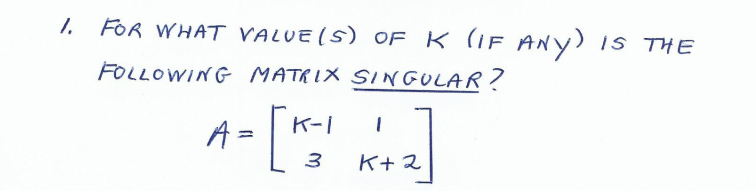 1. FOR WHAT VALUE(S) OF K (IF ANY) IS THE
FOLLOWING MATRIX SINGULAR?
A = [ K-1 1
3 K+2 ]